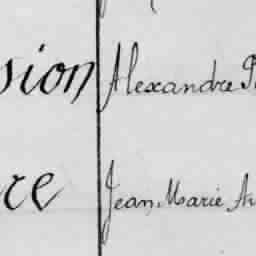 sion Alexandre
re Jean Marie